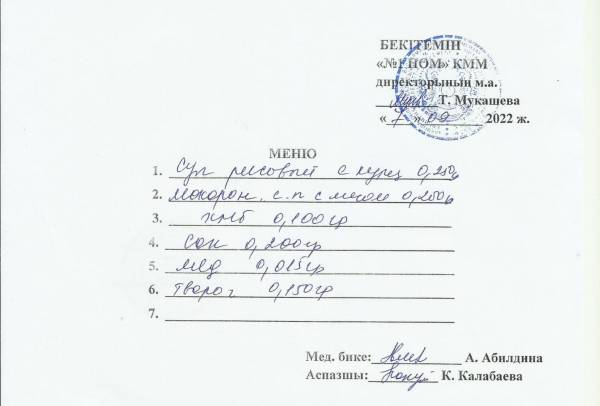 БЕКІТЕМІН
«№1 ПОМ» КММ
директорының м.а.
Т. Мукашева
« 7 » 09 2022 ж.
МЕНЮ
1. Суп рисовый с куриц 0,250г
2. Макарон. с.п с мясом 0,200г
3. хлеб 0,100гр
4. Сок 0,200гр
5. мед 0,015гр
6. Творог 0,150гр
7.
Мед. бике: А. Абилдина
Аспазшы: К. Калабаева